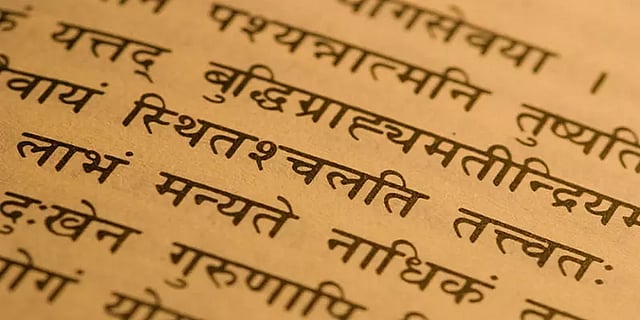 योगसेवया ।
पश्यन्नात्मनि तुष्यति
यत्तद् बुद्धिग्राह्यमतीन्द्रियम
वायं स्थितश्चलति तत्त्वतः
लाभं मन्यते नाधिकं
दुःखेन गुरुणापि